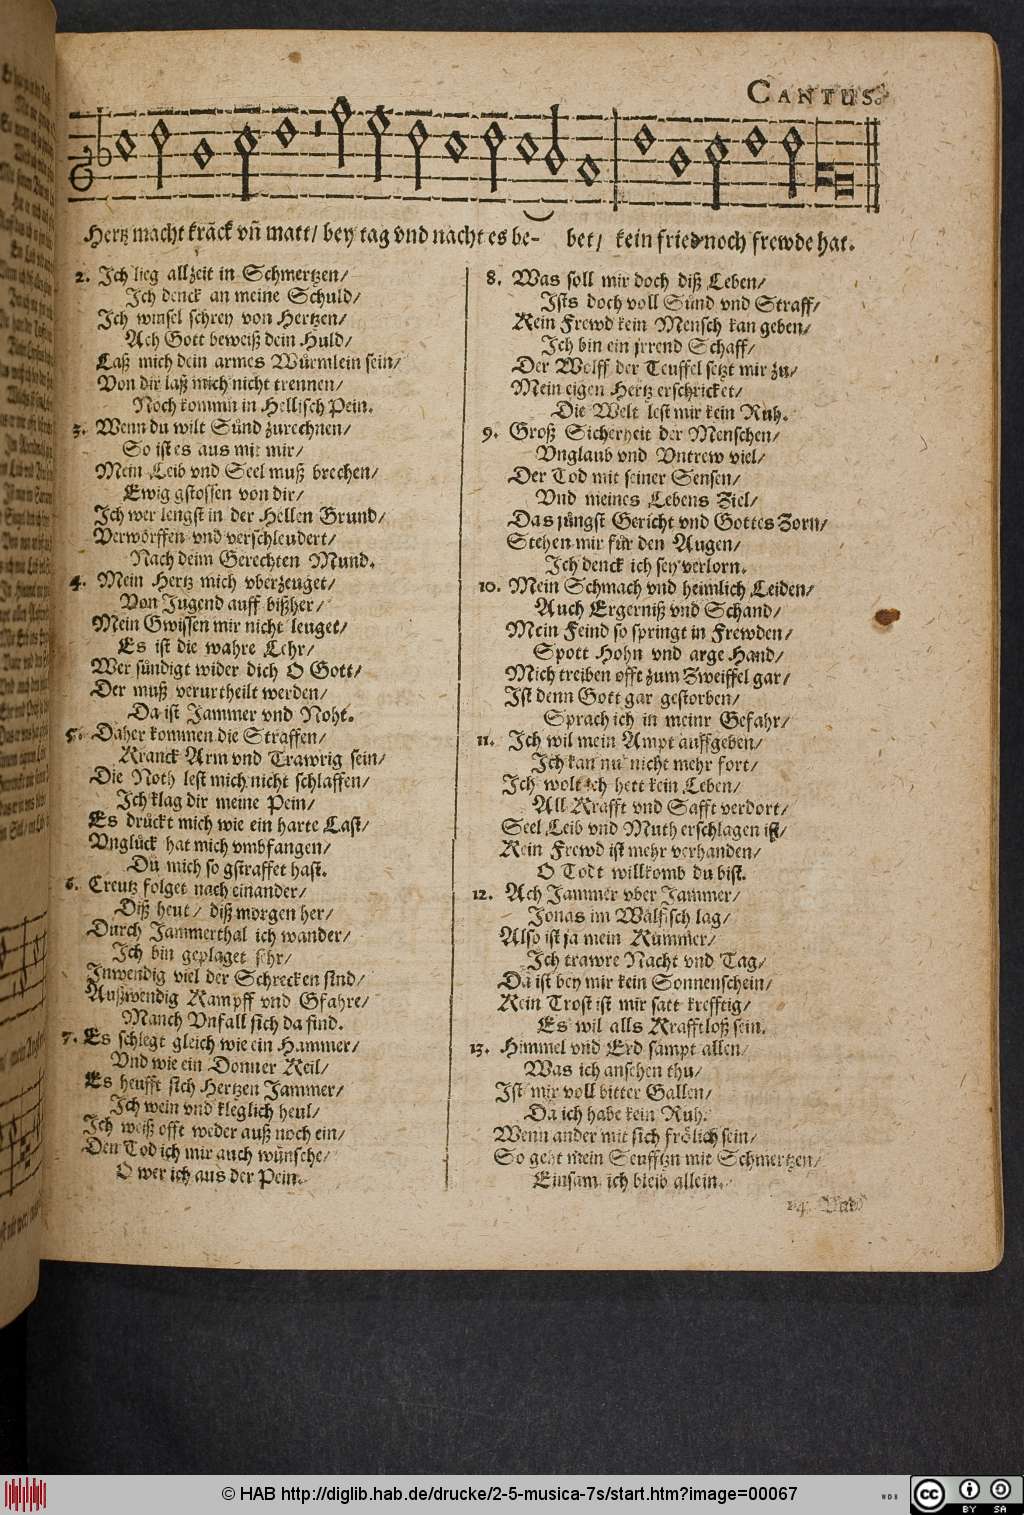 CANTUS.
Hertz macht kräck vñ matt/ bey tag vnd nacht es be- bet/ kein fried noch frewde hat.
2. Ich lieg allzeit in Schmertzen/
Ich denck an meine Schuld/
Ich winsel schrey von Hertzen/
Ach Gott beweiß dein Huld/
Laß mich dein armes Würmlein sein/
Von dir laß mich nicht trennen/
Noch kommn in Hellisch Pein.
3. Wenn du wilt Sünd zurechnen/
So ist es aus mit mir/
Mein Leib vnd Seel muß brechen/
Ewig gstossen von dir/
Ich wer lengst in der Hellen Grund/
Verworffen vnd verschleudert/
Nach deim Gerechten Mund.
4. Mein Hertz mich vberzeuget/
Von Jugend auff bißher/
Mein Gwissen mir nicht leuget/
Es ist die wahre Lehr/
Wer sündigt wider dich O Gott/
Der muß verurtheilt werden/
Da ist Jammer vnd Noht.
5. Daher kommen die Straffen/
Kranck Arm vnd Trawrig sein/
Die Noth lest mich nicht schlaffen/
Ich klag dir meine Pein/
Es drückt mich wie ein harte Last/
Vnglück hat mich vmbfangen/
Du mich so gstraffet hast.
6. Creutz folget nach einander/
Diß heut/ diß morgen her/
Durch Jammerthal ich wander/
Ich bin geplaget sehr/
Inwendig viel der Schrecken sind/
Außwendig Kampff vnd Gfahre/
Manch Vnfall sich da find.
7. Es schlegt gleich wie ein Hammer/
Vnd wie ein Donner Keil/
Es heufft sich Hertzen Jammer/
Ich wein vnd kleglich heul/
Ich weiß offt weder auß noch ein/
Den Tod ich mir auch wünsche/
O wer ich aus der Pein.
8. Was soll mir doch diß Leben/
Ists doch voll Sünd vnd Straff/
Kein Frewd kein Mensch kan geben/
Ich bin ein jrrend Schaff/
Der Wolff der Teuffel setzt mir zu/
Mein eigen Hertz erschricket/
Die Welt lest mir kein Ruh.
9. Groß Sicherheit der Menschen/
Vnglaub vnd Vntrew viel/
Der Tod mit seiner Sensen/
Vnd meines Lebens Ziel/
Das jüngst Gericht vnd Gottes Zorn/
Stehen mir für den Augen/
Ich denck ich sey verlorn.
10. Mein Schmach vnd heimlich Leiden/
Auch Ergerniß vnd Schand/
Mein Feind so springt in Frewden/
Spott Hohn vnd arge Hand/
Mich treiben offt zum Zweiffel gar/
Ist denn Gott gar gestorben/
Sprach ich in meinr Gefahr/
11. Ich wil mein Ampt auffgeben/
Ich kan nu nicht mehr fort/
Ich wolt ich hett kein Leben/
All Krafft vnd Safft verdort/
Seel Leib vnd Muth erschlagen ist/
Kein Frewd ist mehr verhanden/
O Todt willkomb du bist.
12. Ach Jammer vber Jammer/
Jonas im Walfisch lag/
Also ist ja mein Kummer/
Ich trawre Nacht vnd Tag/
Da ist bey mir kein Sonnenschein/
Kein Trost ist mir satt krefftig/
Es wil alls Krafftloß sein.
13. Himmel vnd Erd sampt allen/
Was ich ansehen thu/
Ist mir voll bitter Gallen/
Da ich habe kein Ruh.
Wenn ander mit sich frölich sein/
So geht mein Seufftzn mit Schmertzen/
Einsam ich bleib allein.
14. Vnd
© HAB http://diglib.hab.de/drucke/2-5-musica-7s/start.htm?image=00067
WDB
cc BY SA